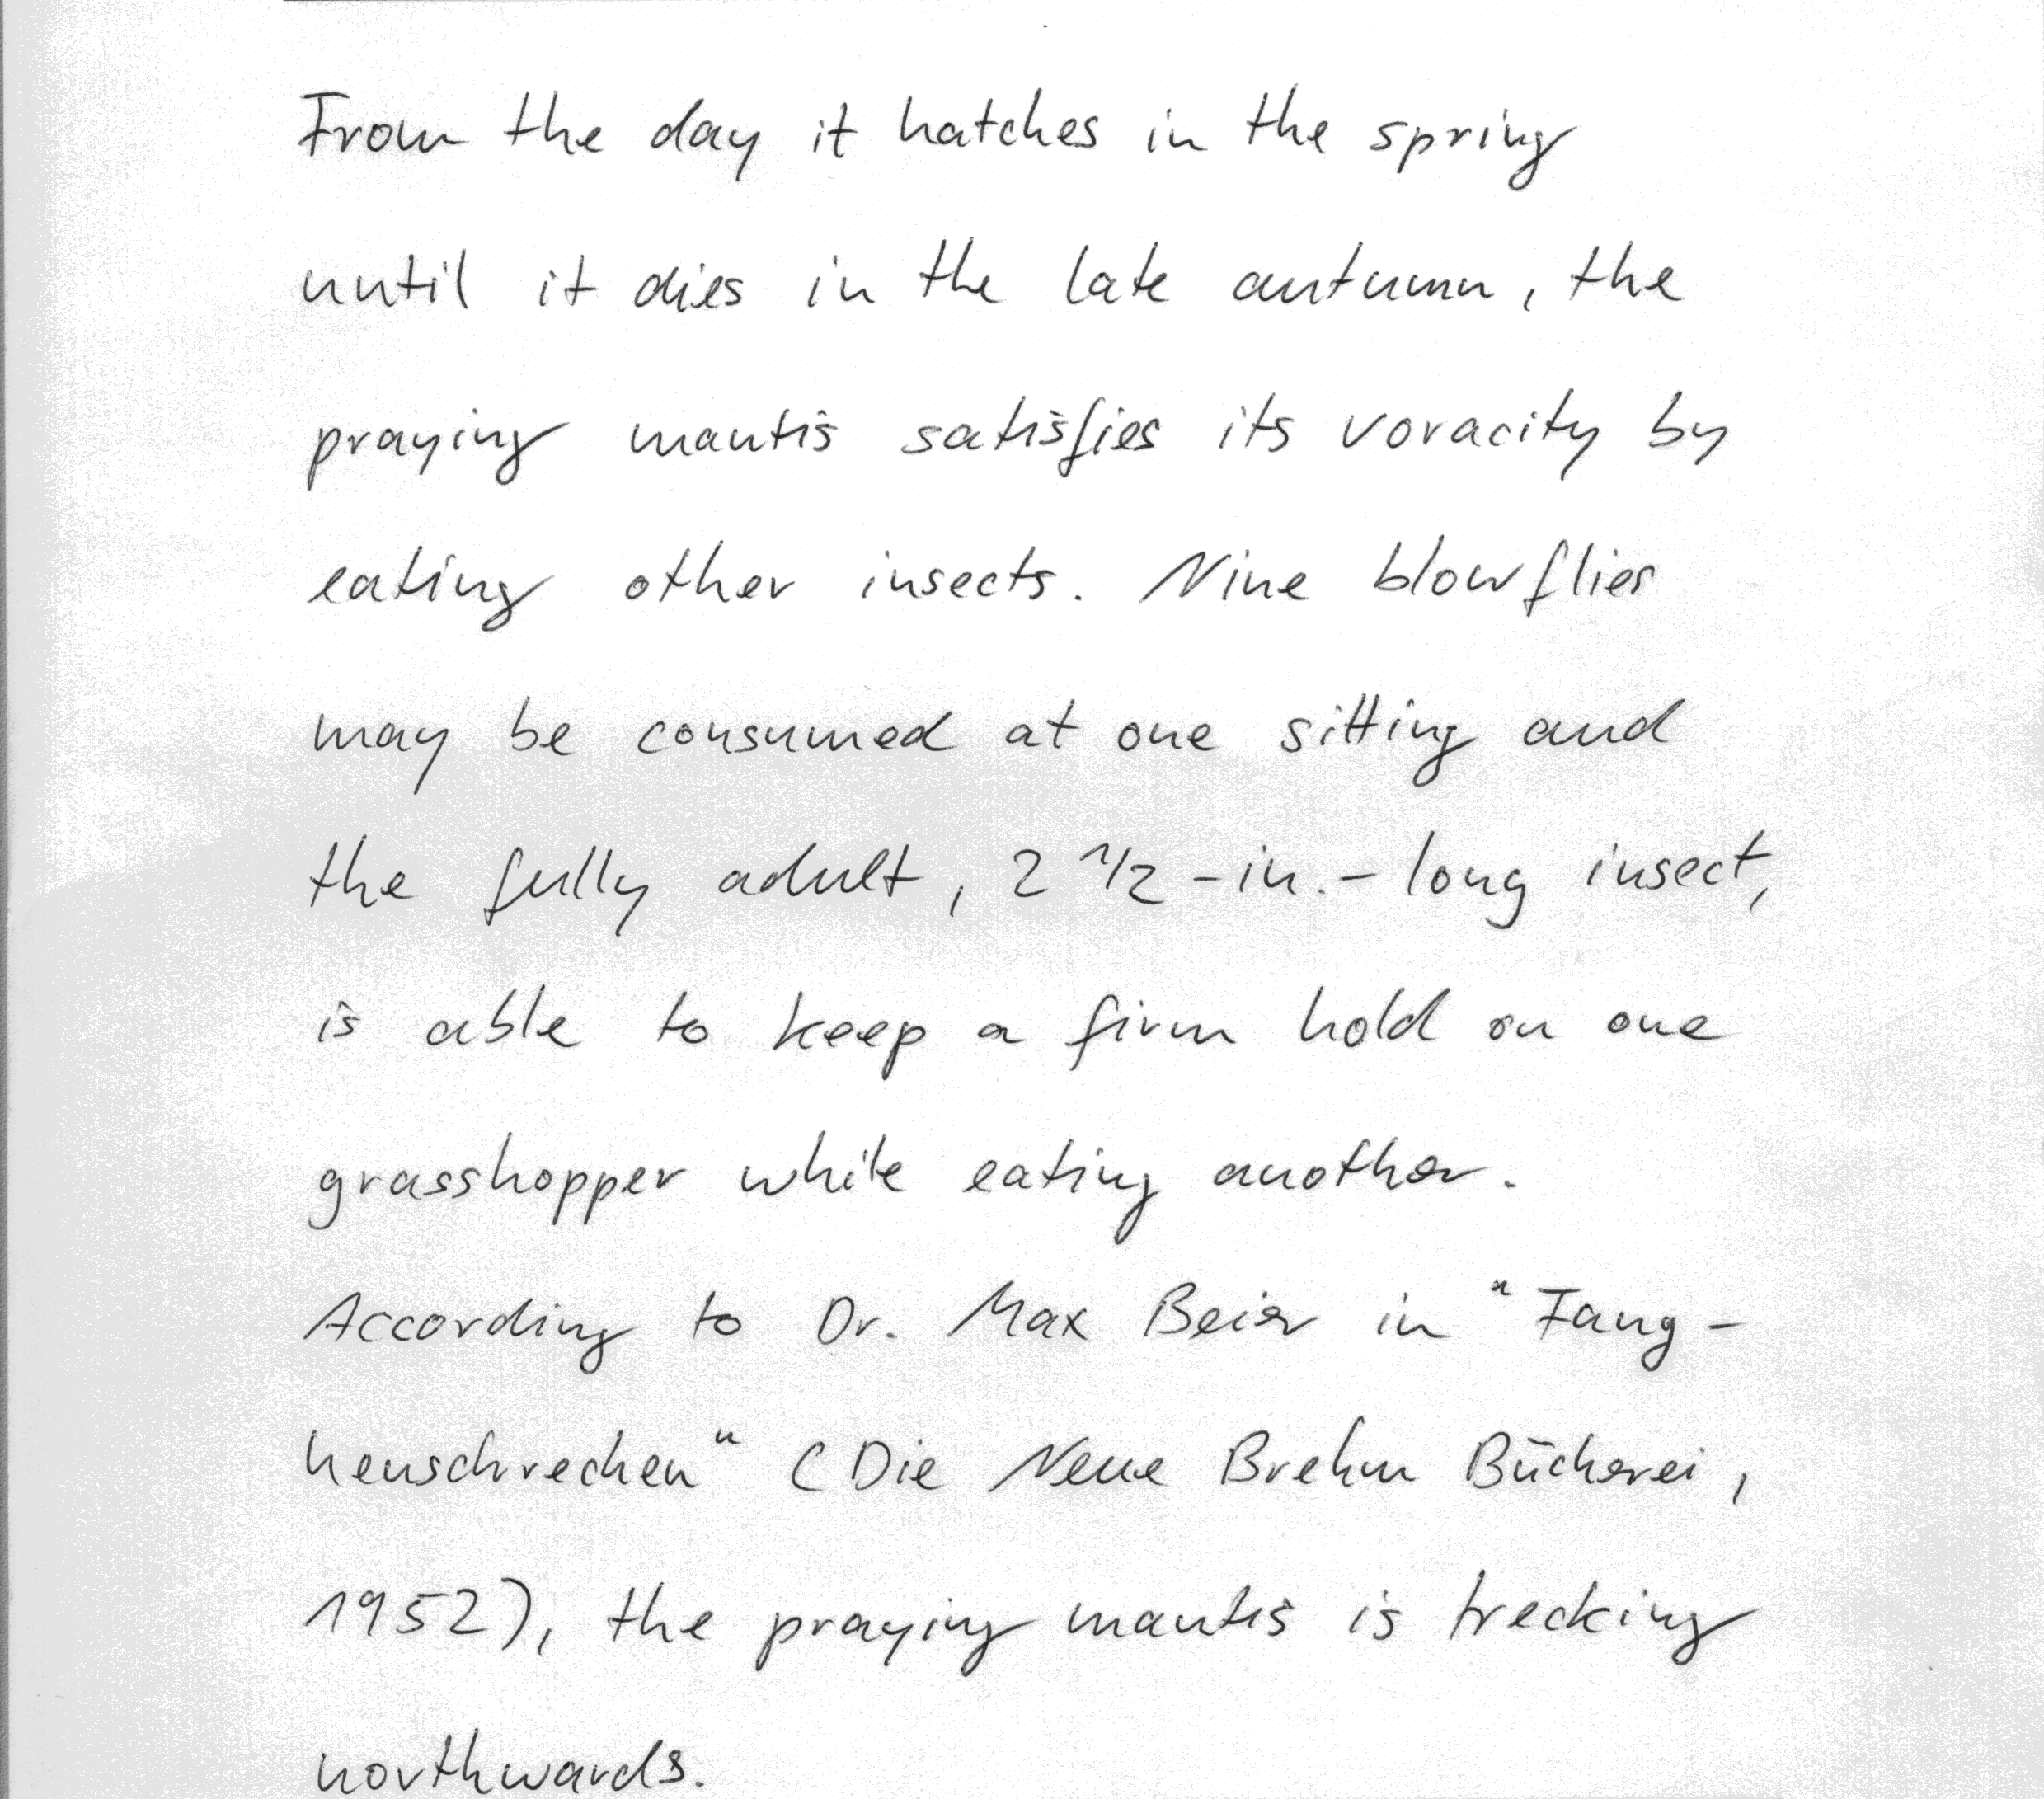 From the day it hatches in the spring
until it dies in the late autumn, the
praying mantis satisfies its voracity by
eating other insects. Nine blowflies
may be consumed at one sitting and
the fully adult, 2 1/2 -in.- long insect,
is able to keep a firm hold on one
grasshopper while eating another.
According to Dr. Max Beier in "Fang-
heuschrecken" (Die Neue Brehm Bücherei,
1952), the praying mantis is trecking
northwards.